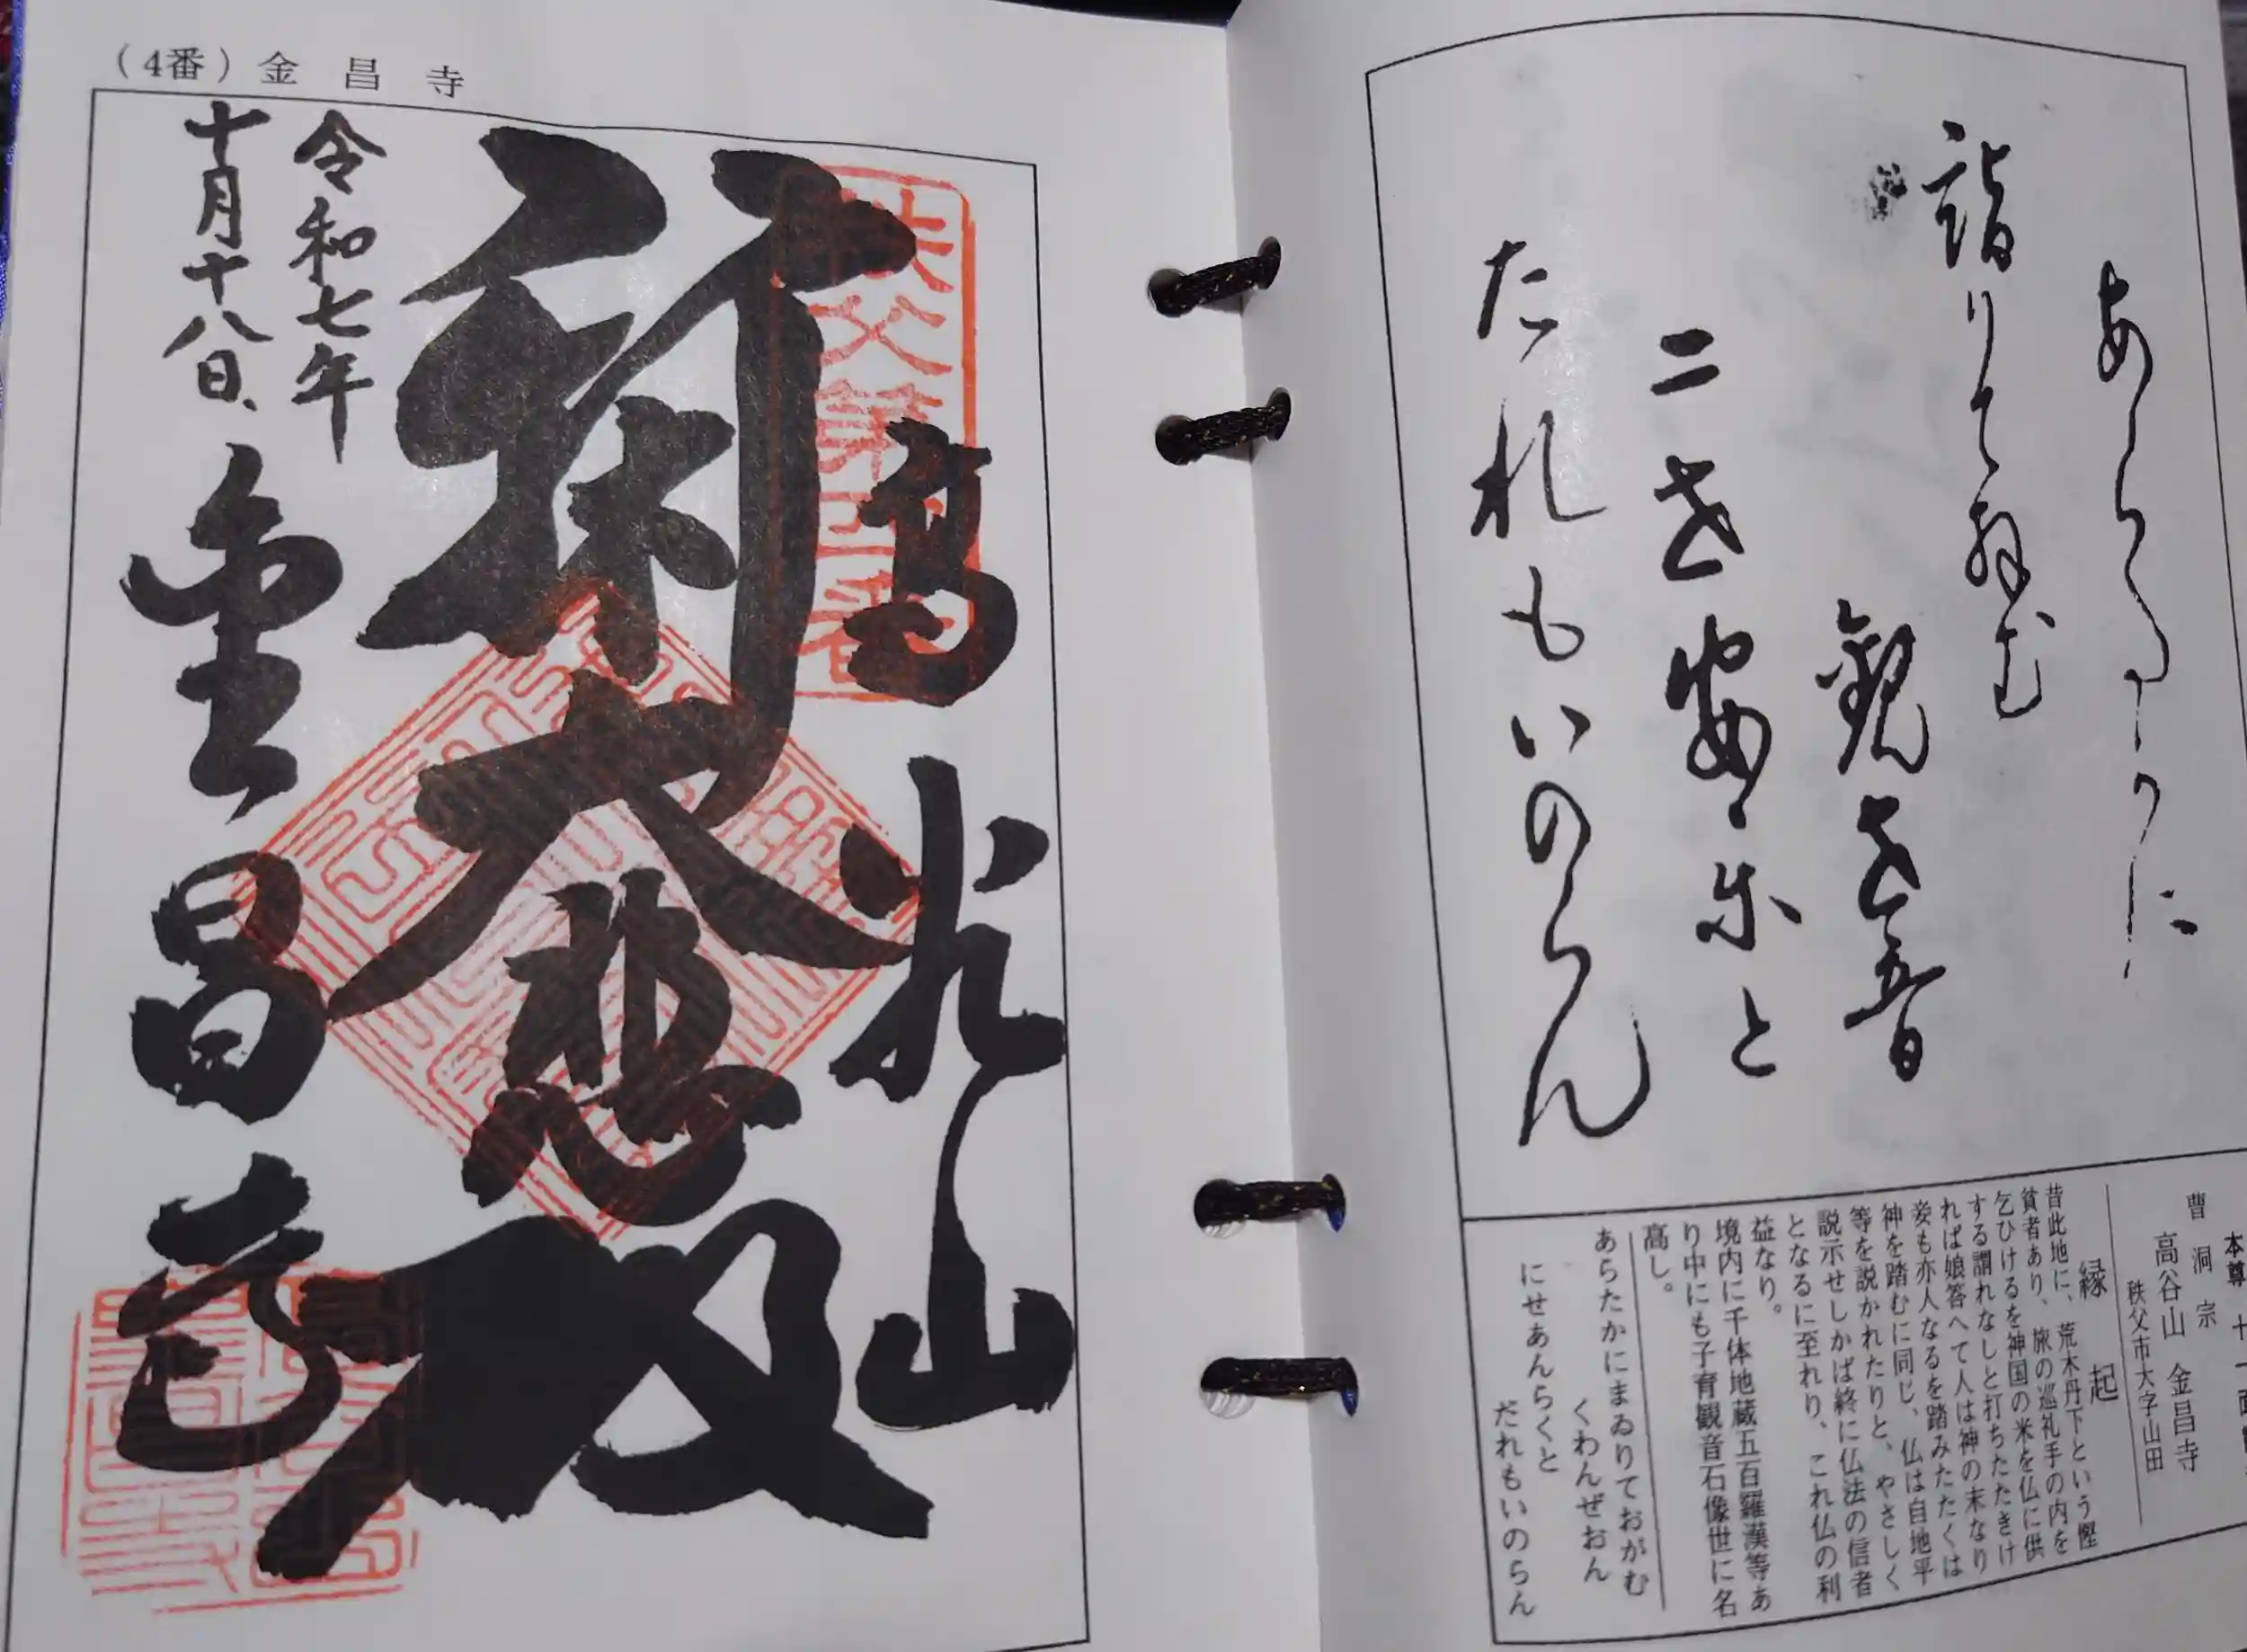 あらたかに
詣りておがむ
観世音
二世安楽と
たれもいのらん
本尊 十一面
曹洞宗
高谷山 金昌寺
秩父市大字山田
縁起
昔此地に、荒木丹下という慳
貧者あり、旅の巡礼手の内を
乞ひけるを神国の米を仏に供
する謂れなしと打ちたたきけ
れば娘答へて人は神の末なり
妾も亦人なるを踏みたたくは
神を踏むに同じ、仏は自地平
等を説かれたりと、やさしく
説示せしかば終に仏法の信者
となるに至れり、これ仏の利
益なり。
境内に千体地蔵五百羅漢等あ
り中にも子育観音石像世に名
高し。
あらたかにまゐりておがむ
くわんぜおん
にせあんらくと
だれもいのらん
(4番)金昌寺
秩父第四番
高谷山
新木大悲殿
令和七年
十月十八日
金昌寺